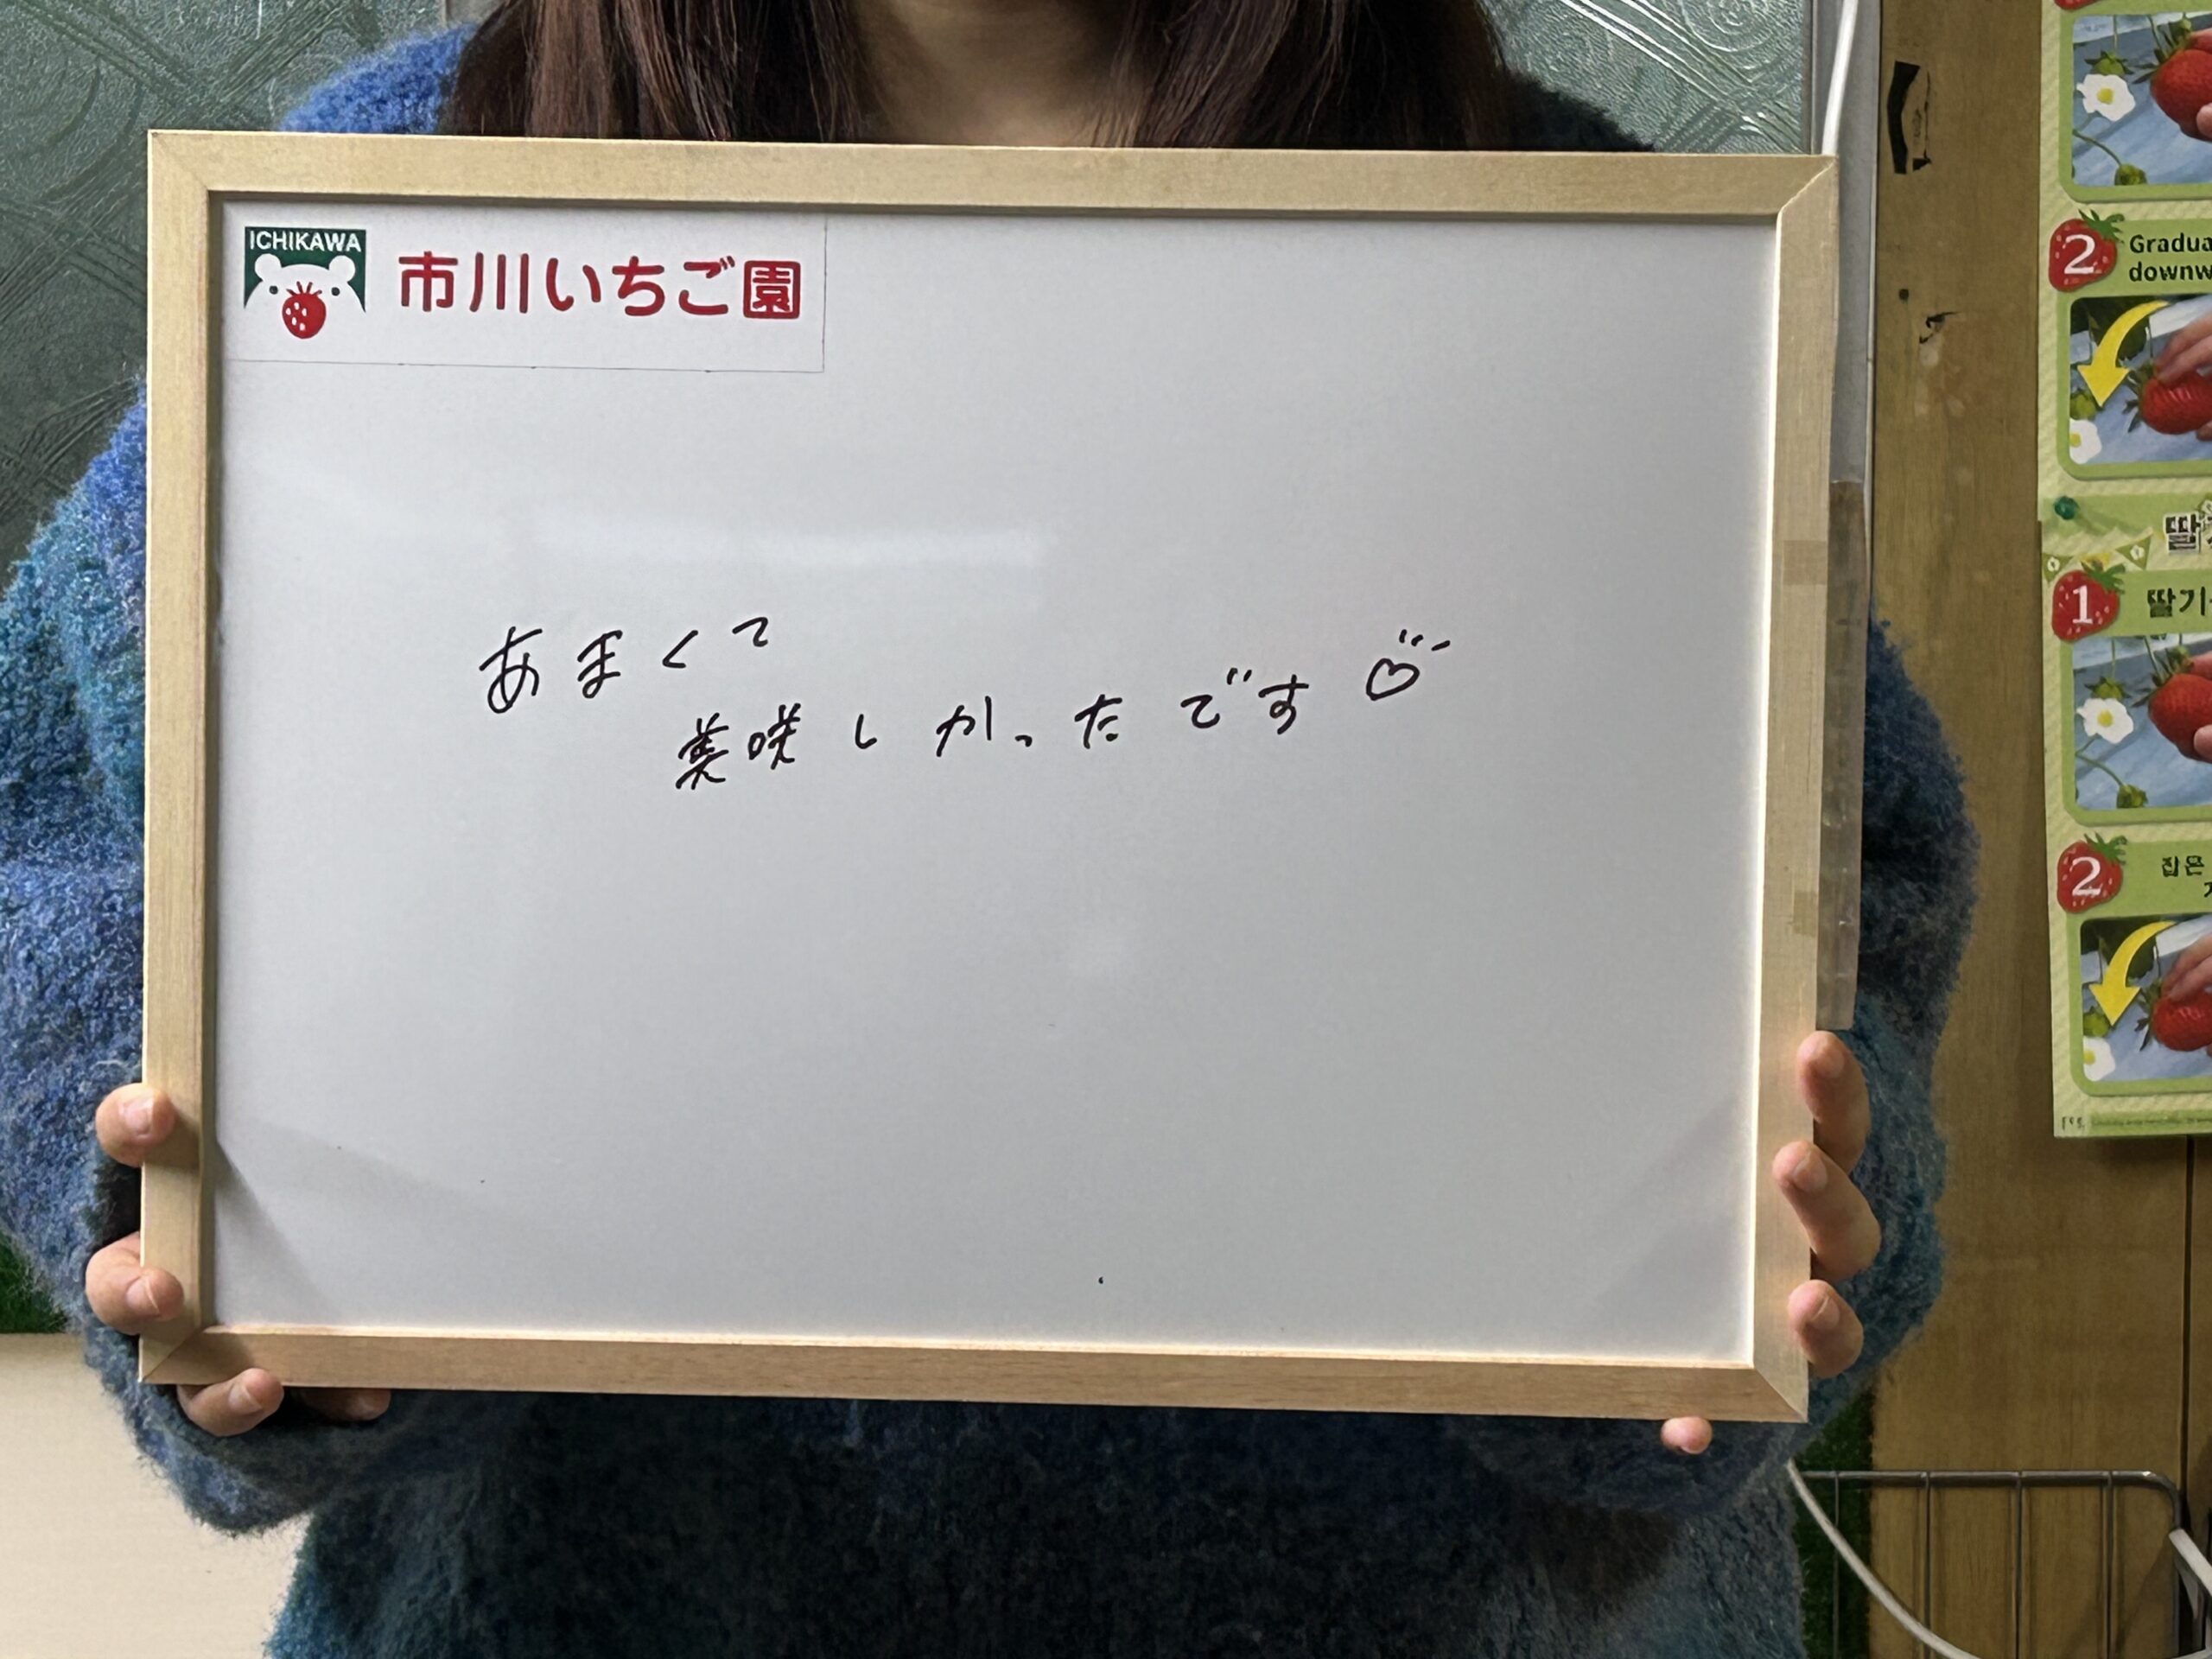 ICHIKAWA
市川いちご園
あまくて
美咲しかったです♡
2 Gradua
downw
1 딸기
2 잡은